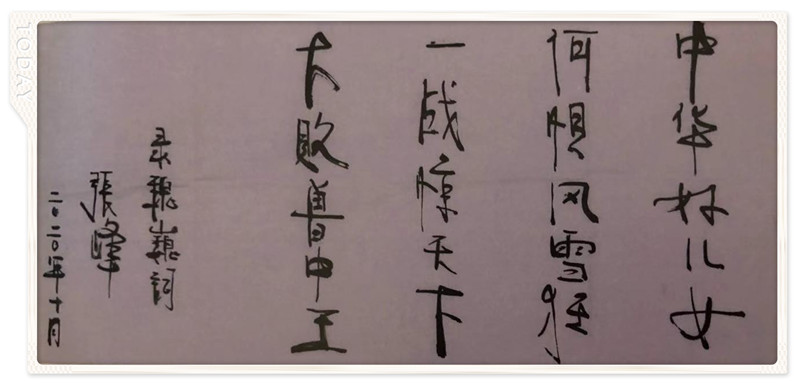 中华好儿女
何惧风雪狂
一战惊天下
大败兽中王
录魏巍詞
張峰
二〇二〇年十月
TODAY